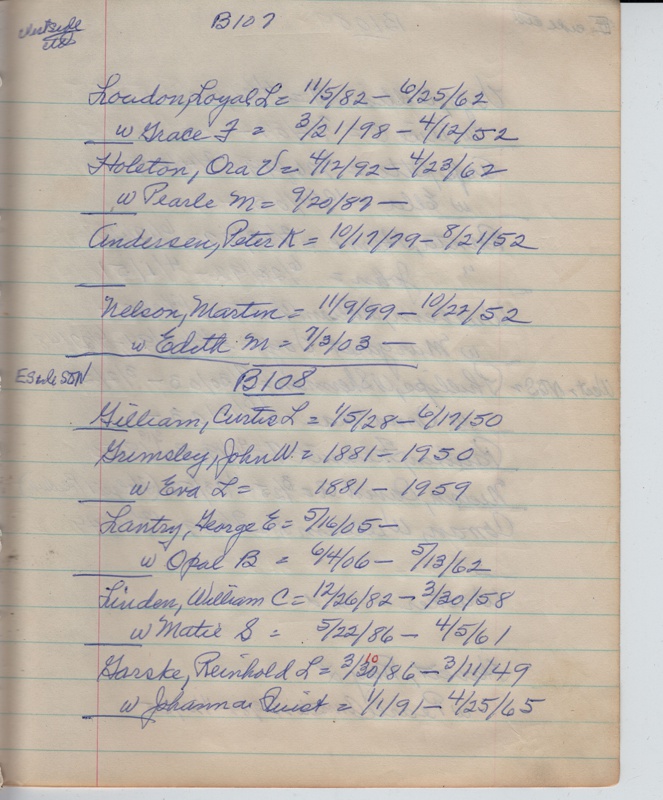 B107
Westside
Loudon, Loyal L = 11/5/82 - 6/25/62
w Grace F = 3/21/98 - 4/12/52
Holston, Ora V = 4/12/92 - 4/23/62
w Pearle M = 9/20/87 -
Andersen, Peter K = 10/17/79 - 8/21/52
Nelson, Martin = 11/9/99 - 10/22/52
w Edith M = 7/3/03 -
B108
E side
Gilliam, Curtis L = 1/5/28 - 6/17/50
Grimsley, John W = 1881 - 1950
w Eva L = 1881 - 1959
Lantry, George E = 5/16/05 -
w Opal B = 6/4/06 - 5/13/62
Linden, William C = 12/26/82 - 3/30/58
w Matie S = 5/22/86 - 4/5/61
10
Garske, Reinhold L = 3/30/86 - 3/11/49
w Johanna Quist = 1/1/91 - 4/25/65